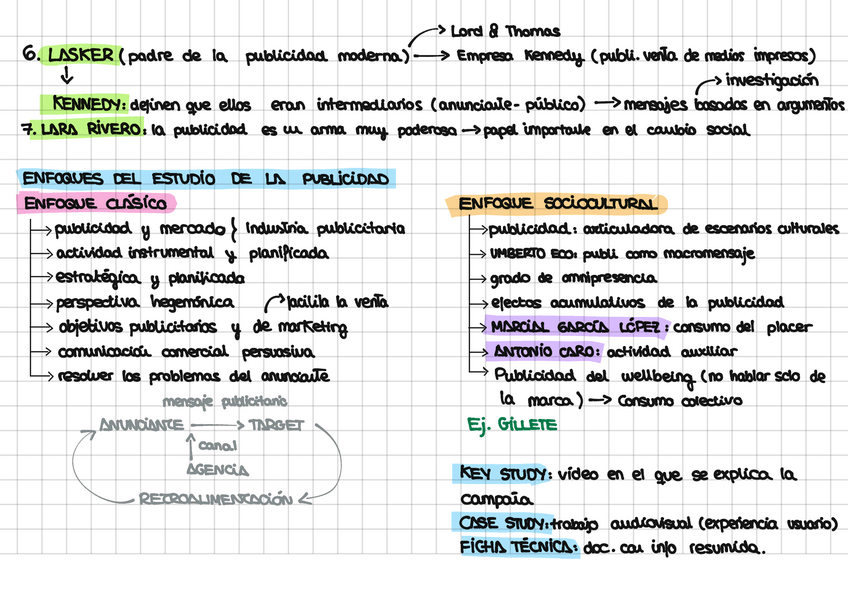 Lord & Thomas
6. LASKER (padre de la publicidad moderna) Empresa Kennedy (publi. venta de medios impresos)
investigación
KENNEDY: definen que ellos eran intermediarios (anunciante-público) → mensajes basados en argumentos
7. LARA RIVERO: la publicidad es un arma muy poderosa → papel importante en el cambio social
ENFOQUES DEL ESTUDIO DE LA PUBLICIDAD
ENFOQUE CLÁSICO
publicidad y mercado } Industria publicitaria
actividad instrumental y planificada
estratégica y planificada
perspectiva hegemónica facilita la venta
objetivos publicitarios y de marketing
comunicación comercial persuasiva
resolver los problemas del anunciante
mensaje publicitario
ANUNCIANTE → TARGET
canal
AGENCIA
RETROALIMENTACIÓN
ENFOQUE SOCIOCULTURAL
publicidad: articuladora de escenarios culturales
UMBERTO ECO: publi como macromensaje
grado de omnipresencia
efectos acumulativos de la publicidad
MARCIAL GARCÍA LÓPEZ: consumo del placer
ANTONIO CARO: actividad auxiliar
Publicidad del wellbeing (no hablar solo de
la marca) → Consumo colectivo
Ej. GILLETE
KEY STUDY: vídeo en el que se explica la
campaña
CASE STUDY: trabajo audiovisual (experiencia usuario)
FICHA TÉCNICA: doc. con info resumida.